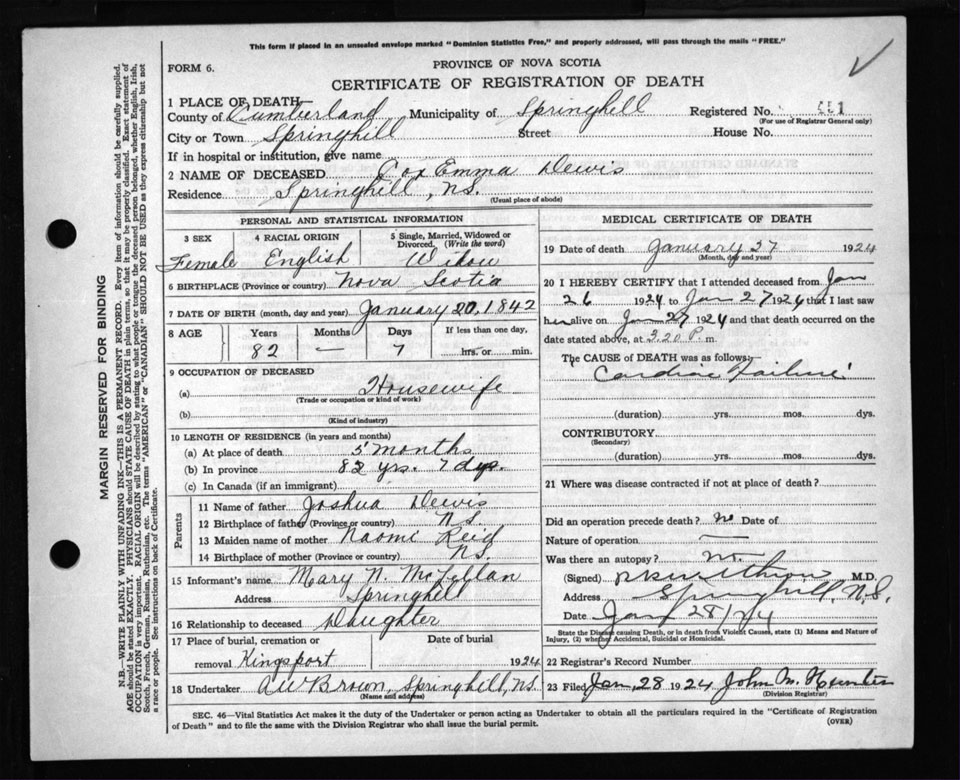 This form if placed in an unsealed envelope marked "Dominion Statistics Free," and properly addressed, will pass through the mails "FREE."
FORM 6.
PROVINCE OF NOVA SCOTIA
CERTIFICATE OF REGISTRATION OF DEATH
1 PLACE OF DEATH
County of Cumberland Municipality of Springhell Registered No. 451
(For use of Registrar General only)
City or Town Springhill Street House No.
If in hospital or institution, give name
2 NAME OF DECEASED Cox Emma Dewis
Residence Springhill, N.S.
(Usual place of abode)
PERSONAL AND STATISTICAL INFORMATION
3 SEX 4 RACIAL ORIGIN 5 Single, Married, Widowed or Divorced. (Write the word)
Female English Widow
6 BIRTHPLACE (Province or country) Nova Scotia
7 DATE OF BIRTH (month, day and year) January 20, 1842
8 AGE Years Months Days If less than one day,
82 — 7 hrs. or min.
9 OCCUPATION OF DECEASED
(a) Housewife
(Trade or occupation or kind of work)
(b)
(Kind of industry)
10 LENGTH OF RESIDENCE (in years and months)
(a) At place of death 5 months
(b) In province 82 yrs. 7 dys.
(c) In Canada (if an immigrant)
Parents
11 Name of father Joshua Dewis
12 Birthplace of father (Province or country) N.S.
13 Maiden name of mother Naomi Reid
14 Birthplace of mother (Province or country) N.S.
15 Informant's name Mary N. McLellan
Address Springhill
16 Relationship to deceased Daughter
17 Place of burial, cremation or Date of burial
removal Kingsport 1924
18 Undertaker A W Brown, Springhill, N.S.
(Name and address)
MEDICAL CERTIFICATE OF DEATH
19 Date of death January 27 1924
(Month, day and year)
20 I HEREBY CERTIFY that I attended deceased from Jan
26 1924 to Jan 27 1924 that I last saw
her alive on Jan 27 1924 and that death occurred on
date stated above, at 3.20 P. m.
The CAUSE of DEATH was as follows:
Cardiac Failure
(duration) yrs. mos. dys.
CONTRIBUTORY
(Secondary)
(duration) yrs. mos. dys.
21 Where was disease contracted if not at place of death?
Did an operation precede death? no Date of
Nature of operation —
Was there an autopsy? no.
(Signed) M.D.
Address Springhill, N.S.
Date Jan 28/24
State the Disease causing Death, or in death from Violent Causes, state (1) Means and Nature of Injury, (2) whether Accidental, Suicidal or Homicidal.
22 Registrar's Record Number
23 Filed Jan 28 1924 John M. Hunter
(Division Registrar)
SEC. 46—Vital Statistics Act makes it the duty of the Undertaker or person acting as Undertaker to obtain all the particulars required in the "Certificate of Registration
of Death" and to file the same with the Division Registrar who shall issue the burial permit. (OVER)
MARGIN RESERVED FOR BINDING
N.B.—WRITE PLAINLY WITH UNFADING INK—THIS IS A PERMANENT RECORD. Every item of information should be carefully supplied.
AGE should be stated EXACTLY. PHYSICIANS should STATE CAUSE OF DEATH in plain terms, so that it may be properly classified. Exact statement of
OCCUPATION is very important. RACIAL ORIGIN will be described by stating to what people or tongue the deceased person belonged, whether English, Irish,
Scotch, French, German, Russian, Ruthenian, etc. The terms "AMERICAN" or "CANADIAN" SHOULD NOT BE USED as they express citizenship but not
a race or people. See instructions on back of Certificate.